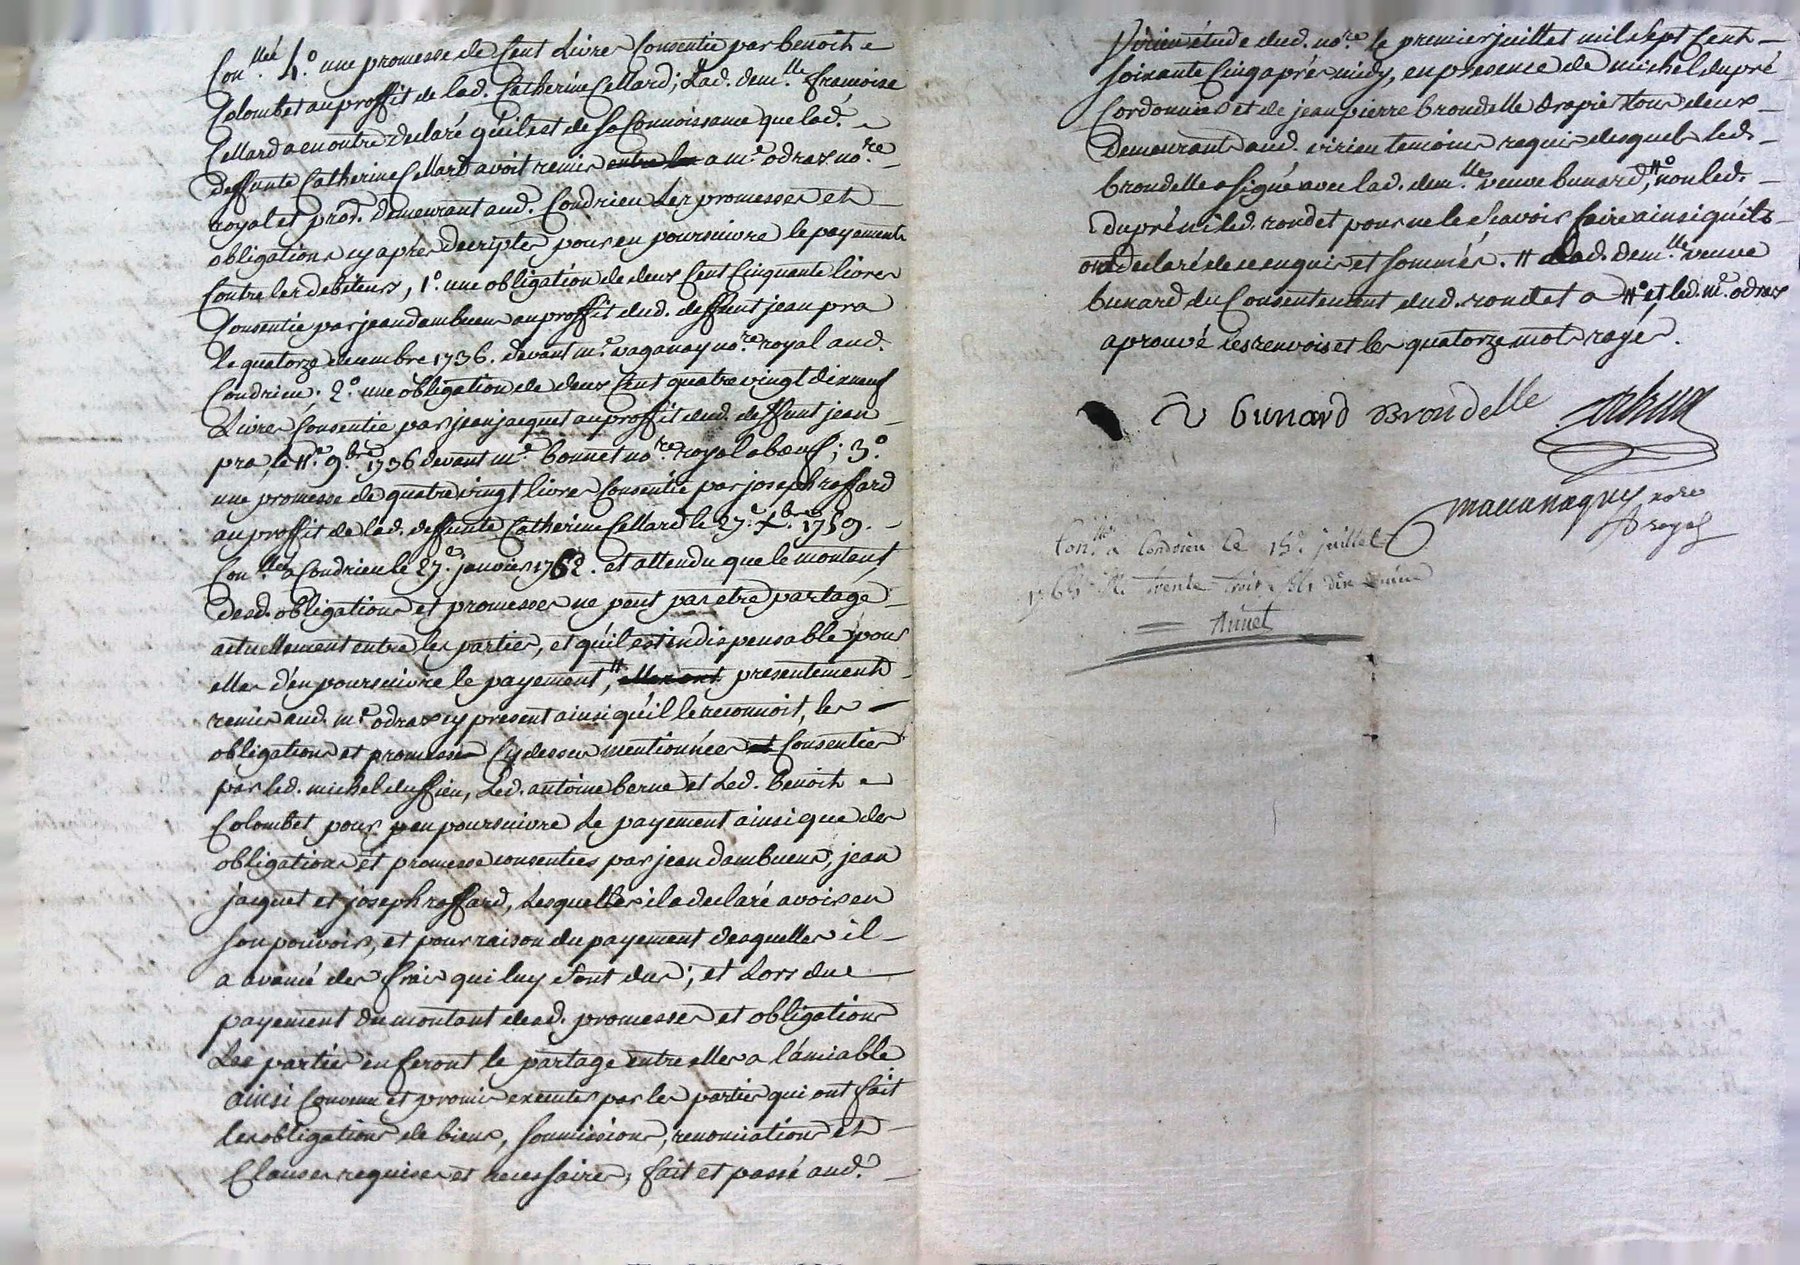 Con.^llée 4.° une promesse de Cent Livres Consentie par benoit
Colombet au proffit de lad. Catherine Cellard; Lad. dem.^lle francoise
Cellard a en outre declaré qu'il est de sa Connoissance que lad.^e
deffunte Catherine Cellard avoit remis entre les a m.^e odrax no.^re
royal et proc.^r demeurant aud. Condrieu Les promesses et
obligations cy apres decriptes pour en poursuivre le payement
Contre les debiteurs, 1.° une obligation de deux Cent Cinquante livres
Consentie par jean dambuens au proffit dud. deffunt jean pra
le quatorze decembre 1736. devant m.^e vaganay no.^re royal aud.
Condrieu. 2.° une obligation de deux Cent quatre vingt dix neuf
Livres Consentie par jean jacquet au proffit dud. deffunt jean
pra, le 11.^e 9.^bre 1736 devant m.^e bonnet no.^re royal a bœuf; 3.°
une promesse de quatre vingt livres Consentie par joseph raffard
au proffit de lad. deffunte Catherine Cellard le 27.^e X.^bre 1759.
Con.^llée a Condrieu le 27.^e janvier 1762. et attendu que le montant
desd. obligations et promesses ne peut pas etre partagé
actuellement entre les parties, et qu'il est indispensable pour
elles d'en poursuivre le payement, # elles ont presentement
remis aud. m.^e odrax cy present ainsi qu'il le reconnoit, les
obligations et promesse Cy dessus mentionnées et Consenties
par led. michel dussieu, Led. antoine berne et Led. benoit
Colombet pour en poursuivre Le payement ainsi que des
obligations et promesse consenties par jean dambuens, jean
jacquet et joseph raffard, Lesquelles il a declaré avoir en
son pouvoir, et pour raison du payement desquelles il
a avancé des frais qui luy sont dus; et Lors du
payement du montant desd. promesses et obligations
Les parties en feront le partage entre elles a l'amiable
ainsi Convenu et promis executer par les parties qui ont fait
les obligations de biens, soumissions, renonciations et
Clauses requises et necessaires, fait et passé aud.
Virieu étude dud. no.^re le premier juillet mil Sept Cent
soixante Cinq aprés midy, en presence de michel dupré
Cordonnier et de jean pierre brondelle drapier tous deux
demeurants aud. virieu temoins requis desquels led.
brondelle a signé avec lad. dem.^lle veuve bunard, #° non led.
dupré ni led. rondet pour ne le sçavoir faire ainsi qu'ils
ont declaré de ce enquis et sommés. # Lad. dem.^lle veuve
bunard du Consentement dud. rondet a #° et led. m.^e odrax
aprouvé les renvois et les quatorze mots rayés.
bunard Brondelle odrax
no.re
royal
Con.^llé a Condrieu le 15.^e juillet
1765. R. trente trois sols dix